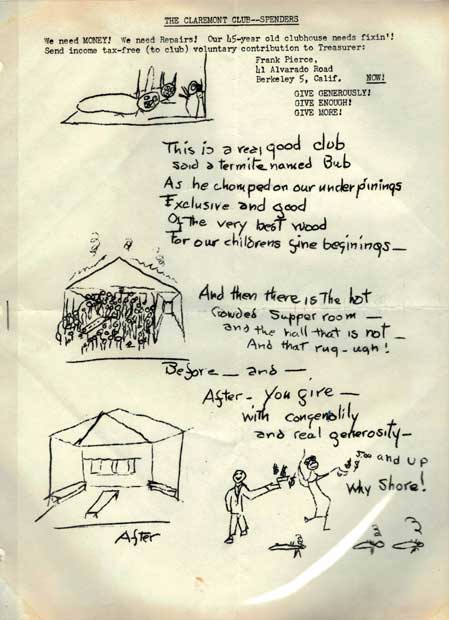 THE CLAREMONT CLUB--SPENDERS
We need MONEY! We need Repairs! Our 45-year old clubhouse needs fixin'!
Send income tax-free (to club) voluntary contribution to Treasurer:
Frank Pierce,
41 Alvarado Road
Berkeley 5, Calif. NOW!
GIVE GENEROUSLY!
GIVE ENOUGH!
GIVE MORE!
This is a real good club
said a termite named Bub
As he chomped on our underpinings
Exclusive and good
Of the very best wood
For our childrens fine beginings—
And then there is the hot
Crowded Supper room —
and the hall that is not —
And that rug - ugh!
Before — and —
After - You give —
with congenality
and real generosity—
5.00 and up
Why Shore!
After